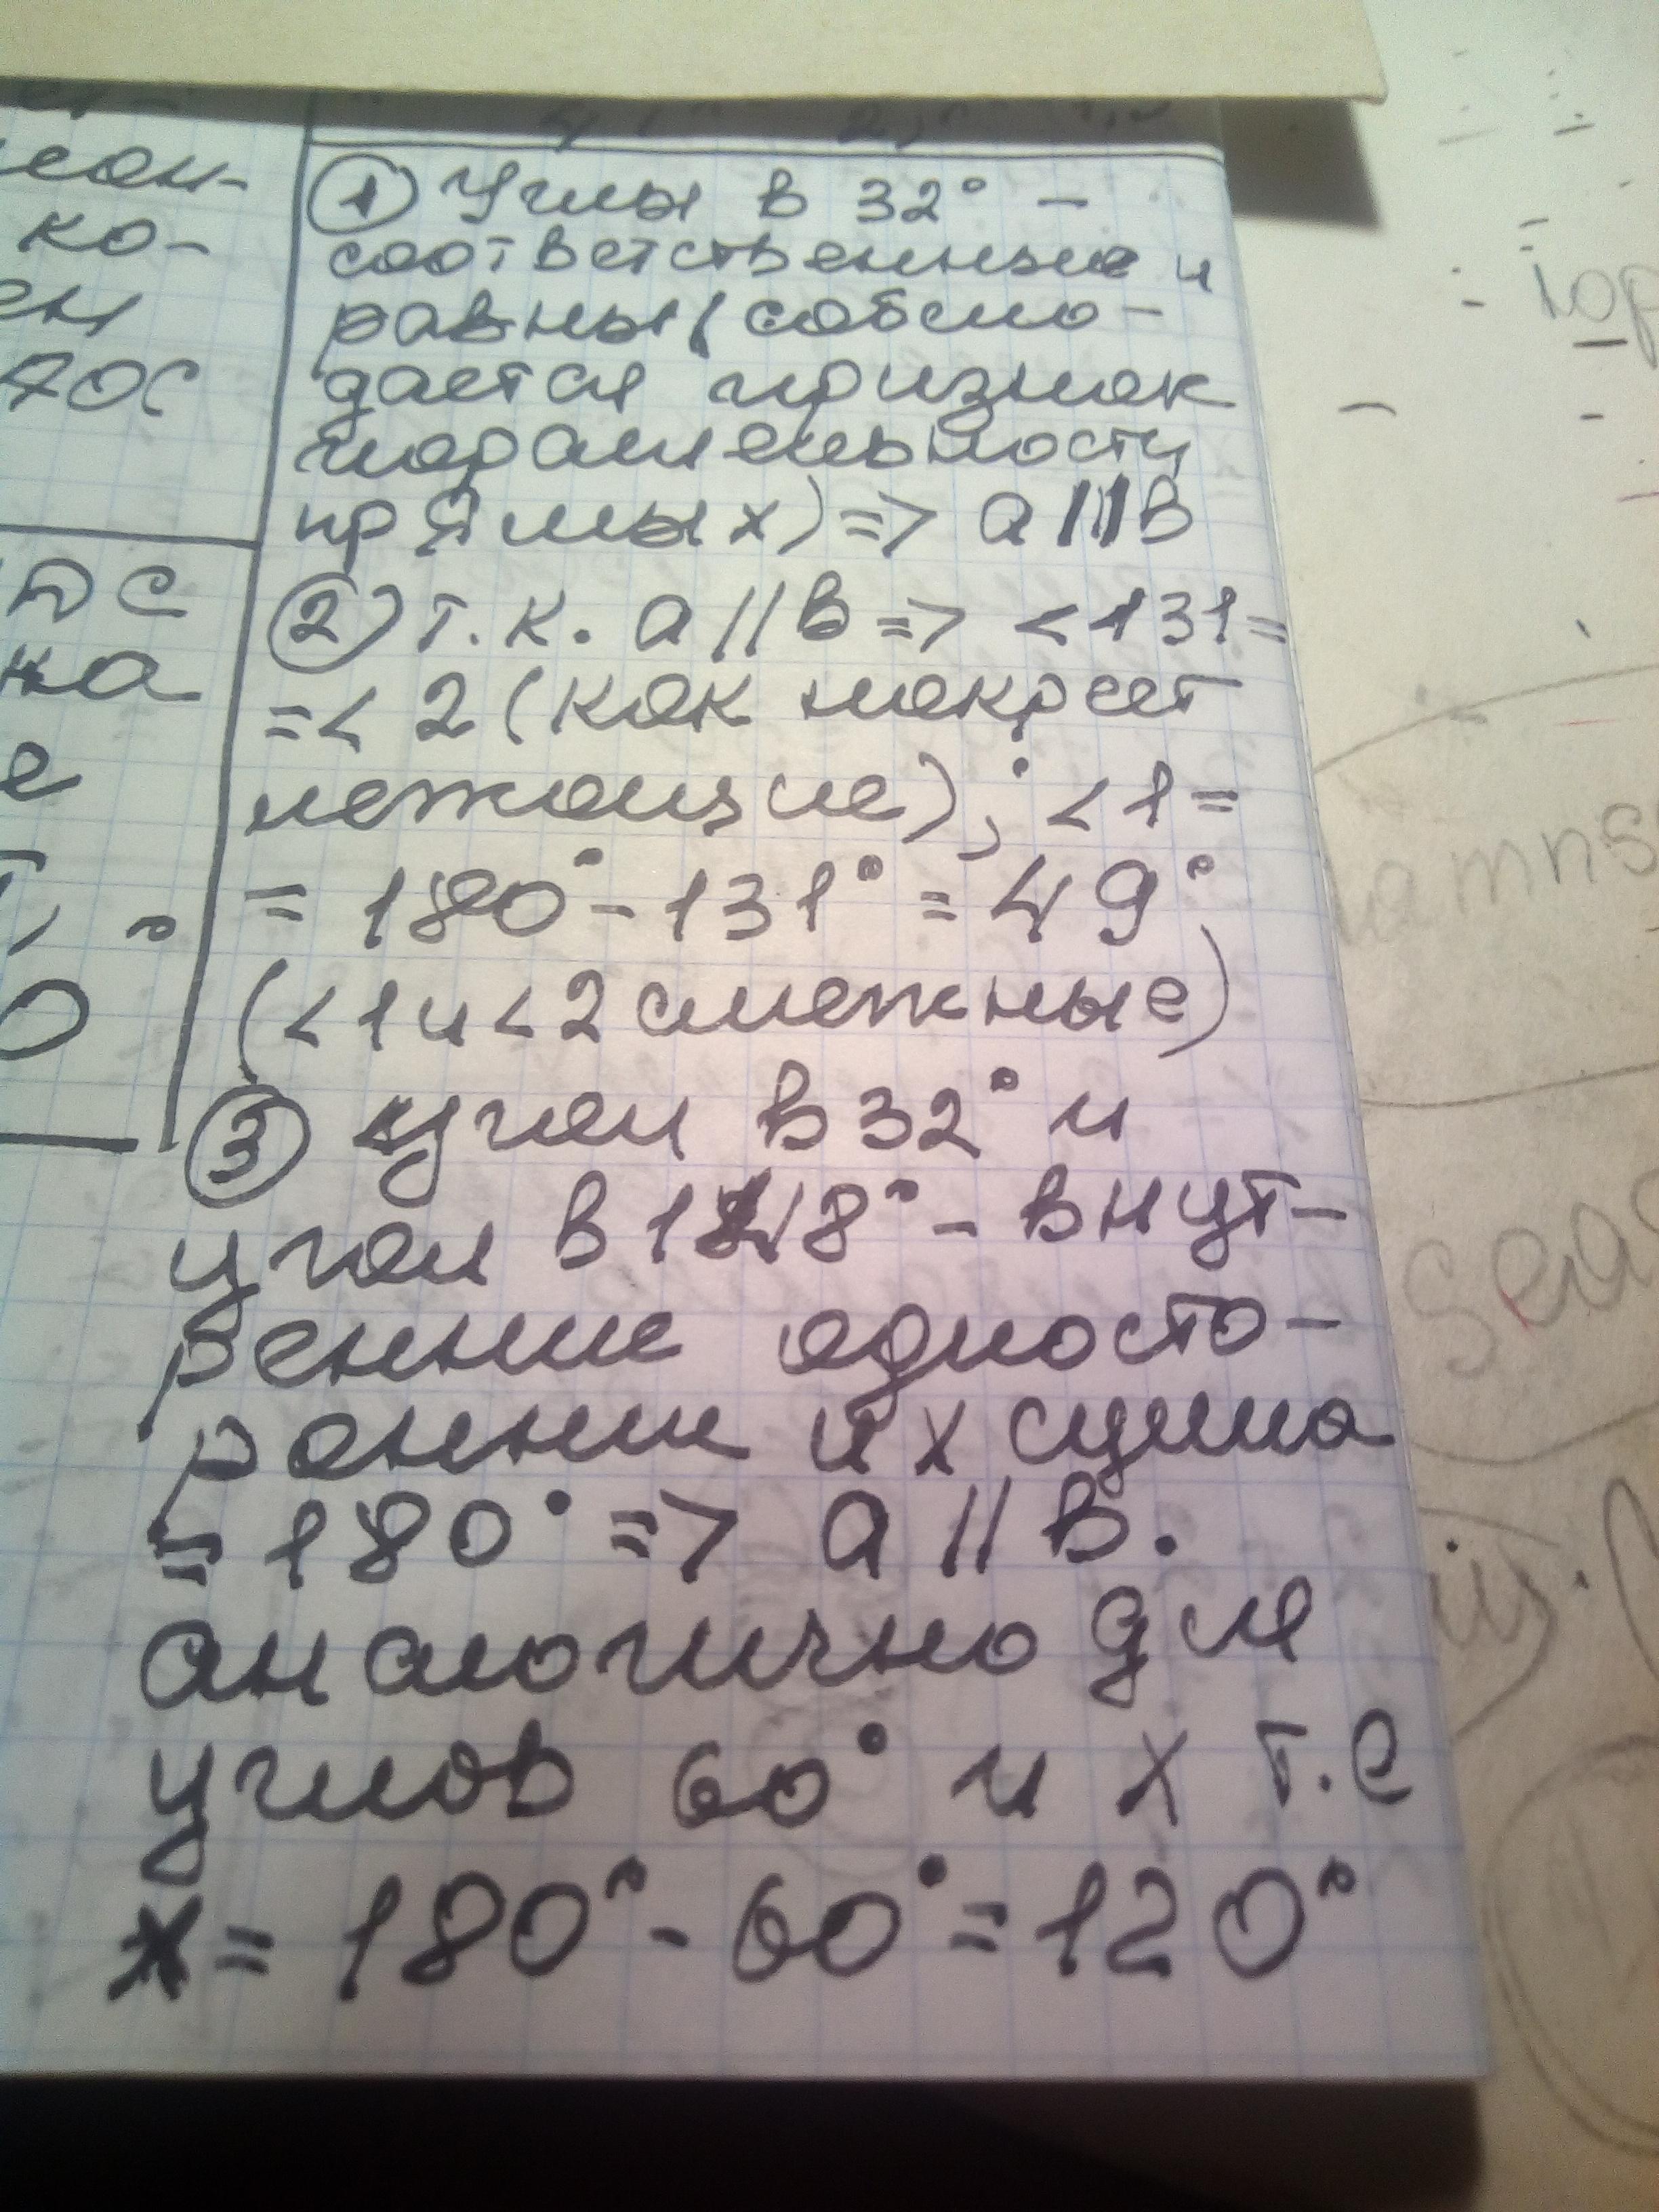 сан-
ко-
ен
АОС
DC
ка
е
0
① Углы в 32° –
соответственные и
равны (соблю-
дается признак
параллельности
прямых) => a || в
② т.к. a // в => <131=
=< 2 (как накрест
лежащие); <1=
= 180° - 131° = 49°
(<1 и <2 смежные)
③ угол в 32° и
угол в 148° – внут-
ренние односто-
ронние их сумма
= 180° => a // в.
аналогично для
углов 60° и x т.е
x = 180° - 60° = 120°